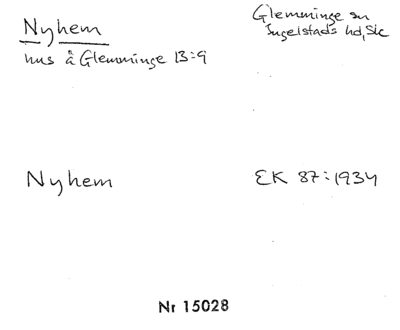 Nyhem
Glemminge sn
Ingelstads hd, Sk
hus å Glemminge 13:9
Nyhem
EK 87:1934
Nr 15028